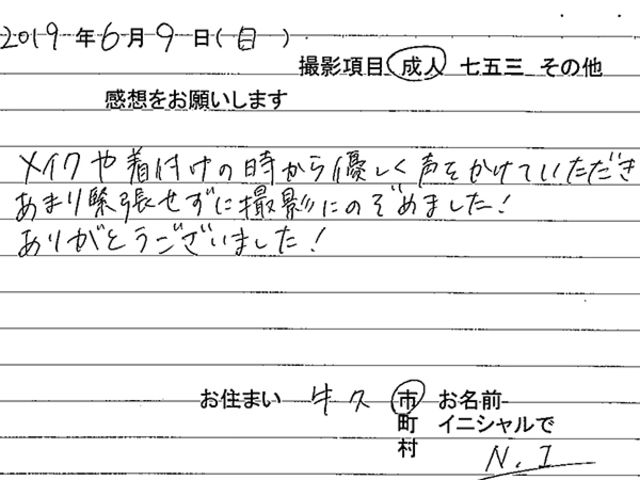 2019年6月9日(日)
撮影項目 成人 七五三 その他
感想をお願いします
メイクや着付けの時から優しく声をかけていただき
あまり緊張せずに撮影にのぞめました!
ありがとうございました!
お住まい 牛久 市 お名前
町 イニシャルで
村 N.I